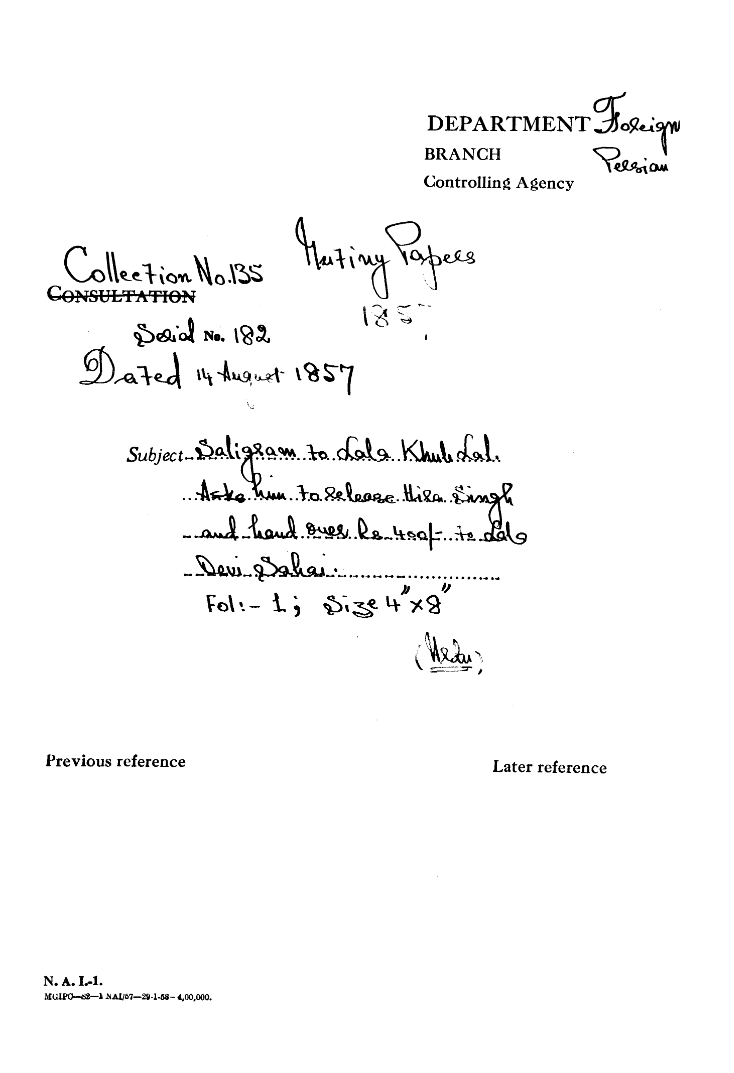 DEPARTMENT Foreign
BRANCH Persian
Controlling Agency
Mutiny Papers
185
Collection No. 135
CONSULTATION
Serial No. 182
Dated 14 August 1857
Subject Saligram to Lala Khub Lal.
Asks him to release Hira Singh
and hand over Rs 400/- to Lala
Devi Sahai.
Fol:- 1; Size 4"x8"
(Urdu)
Previous reference
Later reference
N. A. I.-1.
MGIPC—S2—1 NAI/57—29-1-58—4,00,000.